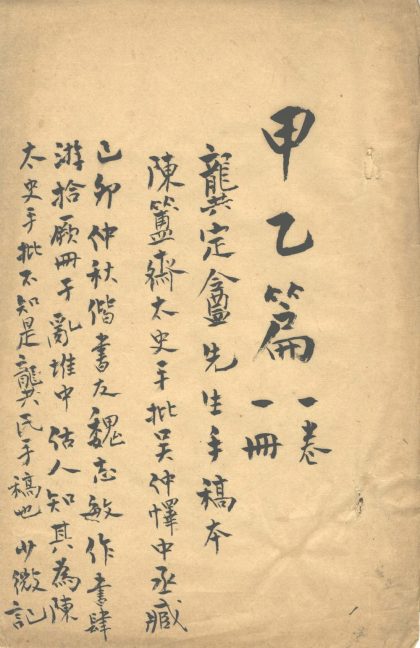 甲乙篇 一卷
一冊
龔定盦先生手稿本
陳簠齋太史手批吳仲懌中丞臧
己卯仲秋偕書友魏志敏作書肆
游拾厥冊于亂堆中估人知其為陳
太史手批不知是龔氏手稿也 少微記